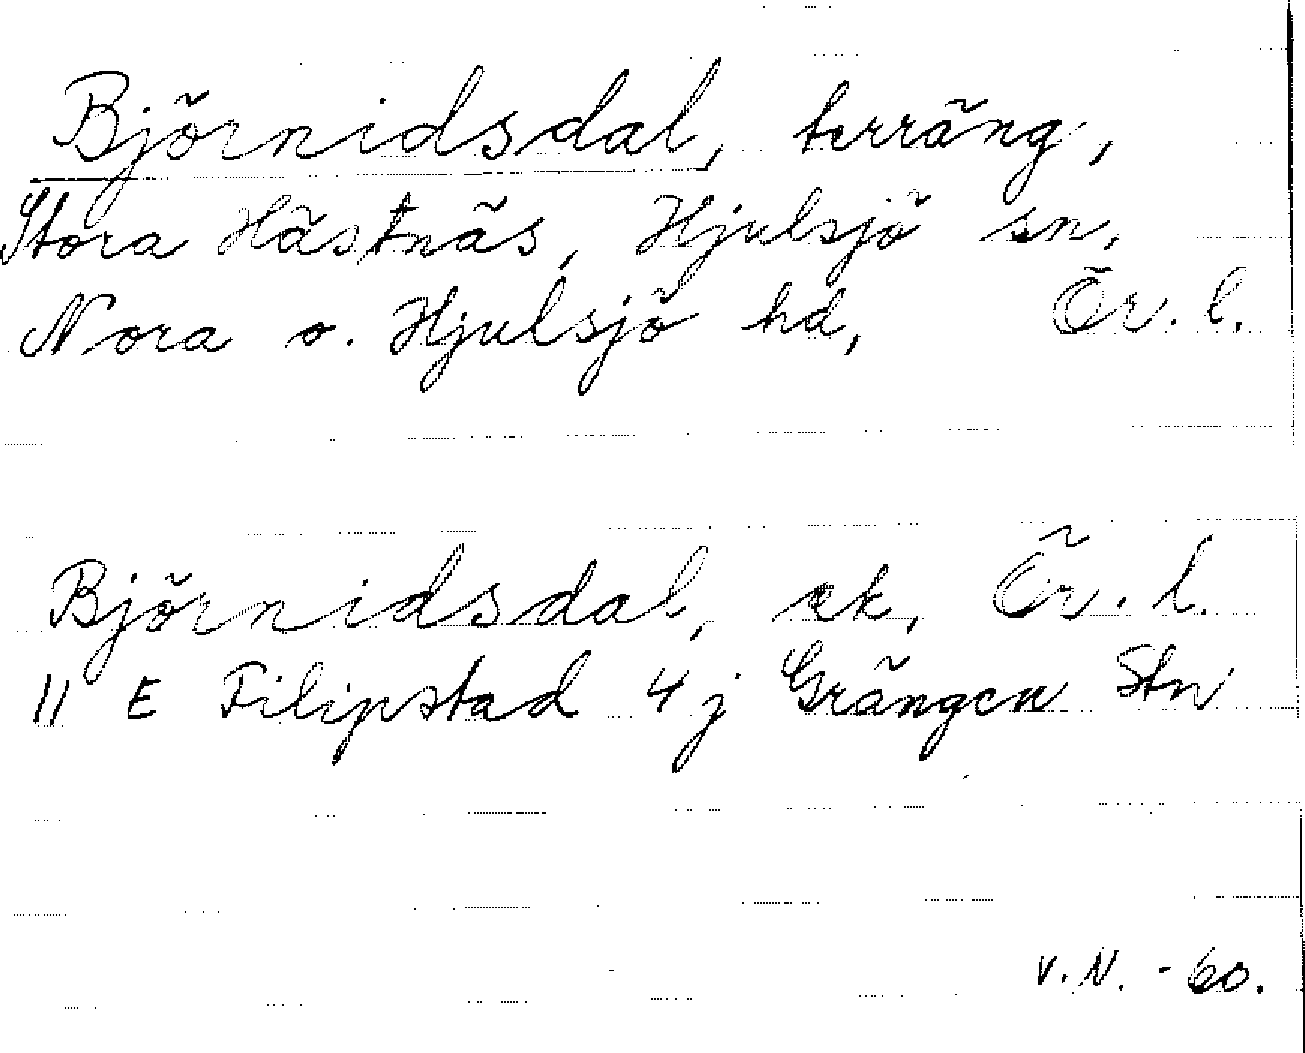 Björnidsdal, terräng,
Stora Hästnäs, Hjulsjö sn,
Nora o. Hjulsjö hd, Ör. l.
Björnidsdal, ek, Ör. l.
11 E Filipstad 4 j Grängen Stn
v. N. - 60.